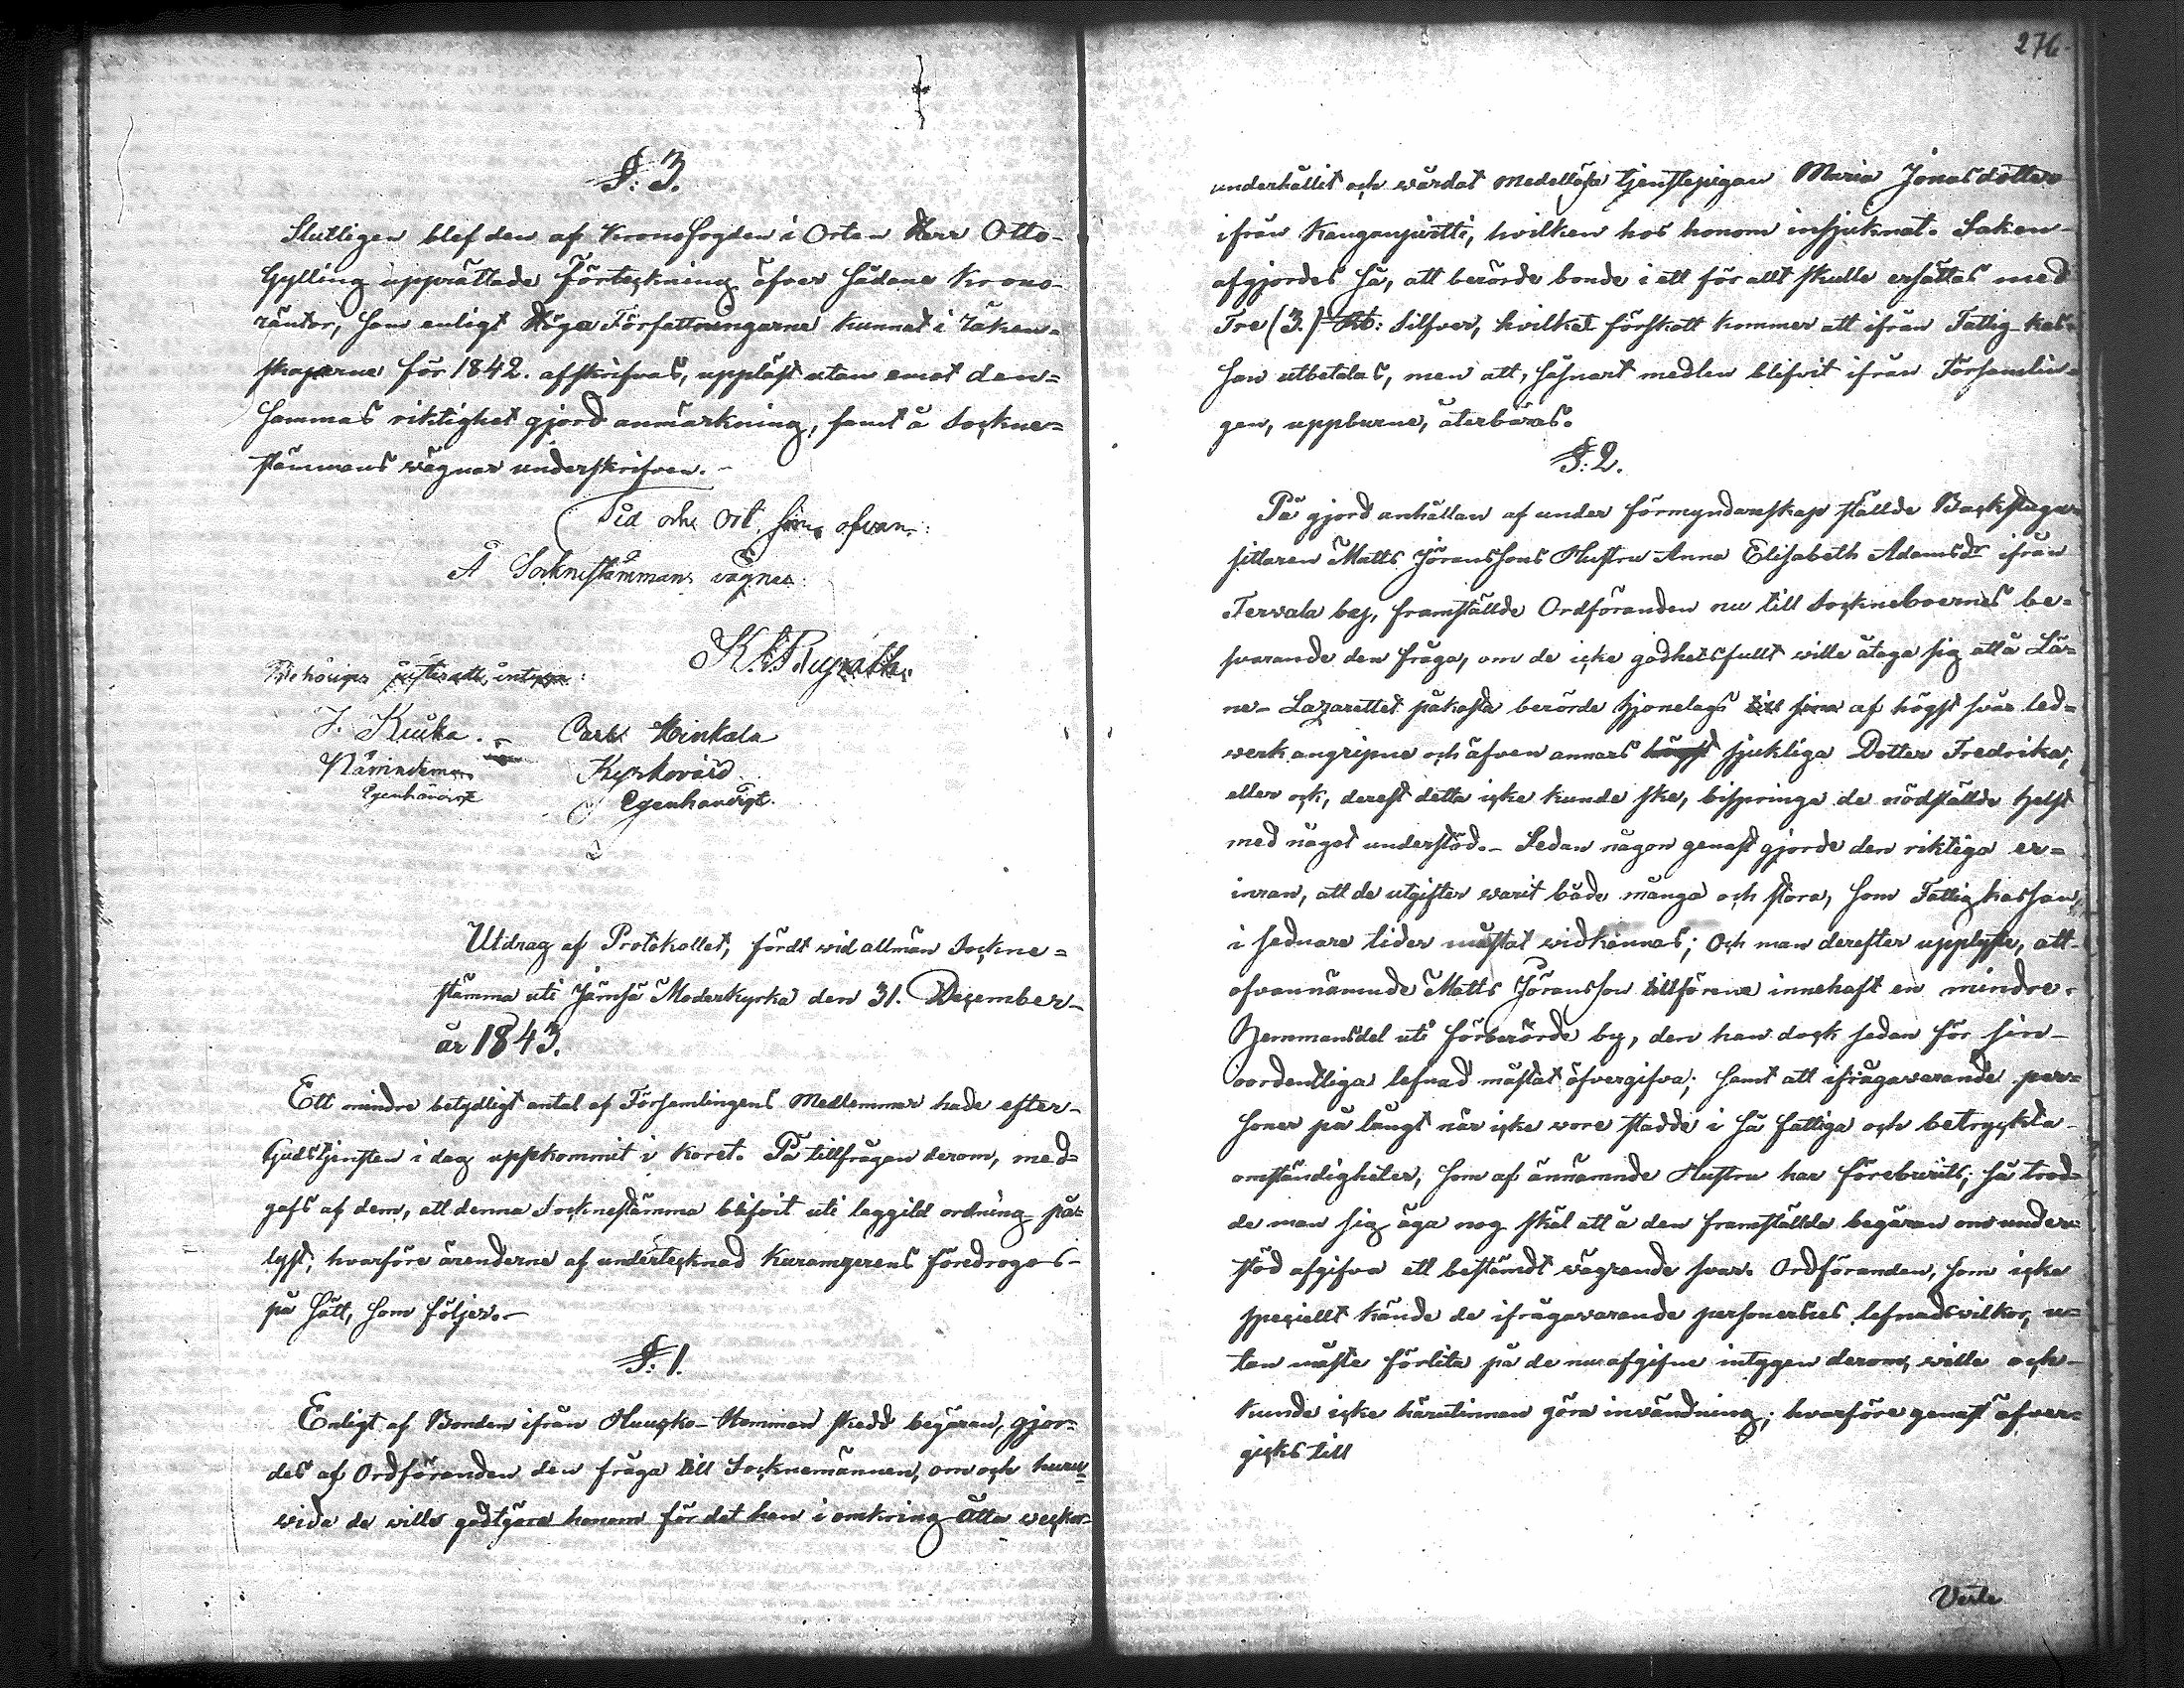 §: 3.
Slutligen blef den af Kronofogden i Orten Herr Otto
Gylling upprättade Förteckning öfver sådane Krono-
räntor, som enligt Höga Författningarne kunnat i räken-
skaperne för 1842. afskrifvas, uppläst utan emot den-
sammas riktighet gjord anmärkning, samt å Sockne-
stämmans wägnar underskrifven. -
Tid och Ort som ofvan:
Å Sockneståmmans vägnar:
Behörigen justeradt, intyga:
J. Kiuka. Carl Hinkala
Nämndeman Kyrkovärd
Egenhändigt Egenhändigt.
Utdrag af Protokollet, fördt wid allmän Sockne-
stämma uti Jämsä Moderkyrka den 31. December
år 1843.
Ett mindre betydligt antal af Församlingens Medlemmar hade efter
Gudstjensten i dag uppkommit i Koret. På tillfrågan derom, med-
gafs af dem, att denna Socknestämma blifvit uti laggild ordning på-
lyst; hvarföre ärenderne af undertecknad foredrogos
på sått, som följer. -
§: 1.
Enligt af Bonden ifrån Hemman skedd begäran, gjor-
des af Ordföranden den fråga till Socknemännen, om och huru
wida de wille godtgöra honom för det han i omkring Åtta weckor
276.
underhållit och wårdat medellösa tjenstepigan Maria Jonasdotter
ifrån hvilken hos honom insjuknat. Saken
afgjordes så, att berörde bonde i ett för allt skulle ersättas med
Tre (3.) Rb: Silfver, hvilket förskott kommer att ifrån Fattig-kas-
san utbetalas, men att, såsnart medlen blifvit ifrån Församlin-
gen, uppburne, återbäras.
§: 2.
På gjord anhållan af under förmynderskap ställde Backstugu-
sittaren Matts Jöranssons Hustru Anna Elisabeth Adamsdr ifrån
Tervala by, framställde Ordföranden nu till Sockneboernes be-
svarande den fråga, om de icke godhetsfullt wille åtaga sig att å Lä-
ne-Lazarettet påkosta berörde Hjonelags till sina af högst svår led-
werk angripne och äfven annars högst sjukliga Dotter Fredrika;
eller ock, derest detta icke kunde ske, bispringa de nödställde helst
med något understöd. - Sedan någon genast gjorde den riktiga er-
inran, att de utgifter warit både många och stora, som Fattigkassan
i sednare tider måstat widkännas; Och man derefter upplyste, att
ofvannämnde Matts Jöransson tillförene innehaft en mindre
Hemmansdel uti förberörde by, den han dock sedan för sin
oordentliga lefnad måstat öfvergifva; samt att ifrågavarande per-
soner på långt när icke wore stadde i så fattiga och betryckta
omständigheter, som af ännämnde Hustru har förebурits; så trod-
de man sig äga nog skäl att å den framställda begäran om under-
stöd afgifva ett bestämdt wägrande svar. Ordföranden, som icke
speciellt kände de ifrågavarande personernes lefnadsvilkor, u-
tan måste förlita på de nu afgifne intygen derom, wille och
kunde icke härutinnan göra invändning; hvarföre genast öfver-
gicks till
Verte